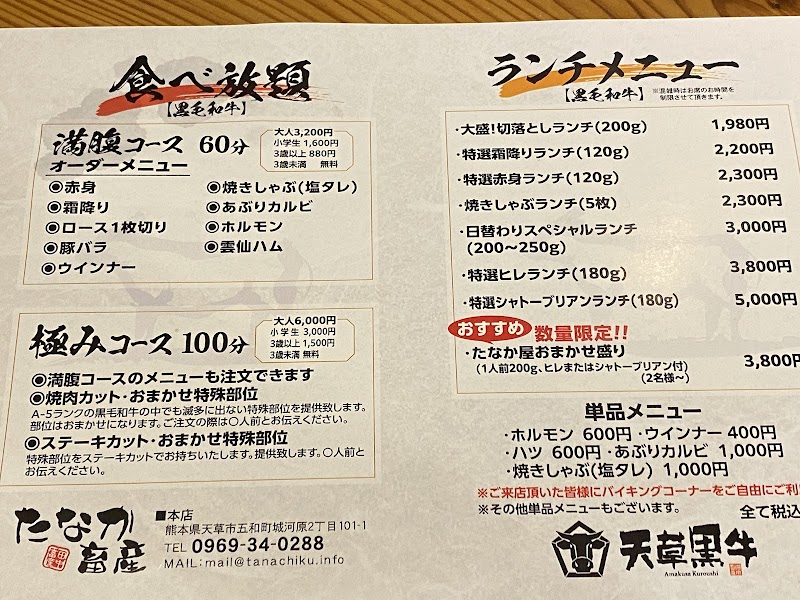 食べ放題
【黒毛和牛】
満腹コース 60分
オーダーメニュー
大人3,200円
小学生 1,600円
3歳以上 880円
3歳未満 無料
◉赤身
◉霜降り
◉ロース1枚切り
◉豚バラ
◉ウインナー
◉焼きしゃぶ(塩タレ)
◉あぶりカルビ
◉ホルモン
◉雲仙ハム
極みコース 100分
大人6,000円
小学生 3,000円
3歳以上 1,500円
3歳未満 無料
◉満腹コースのメニューも注文できます
◉焼肉カット・おまかせ特殊部位
A-5ランクの黒毛和牛の中でも滅多に出ない特殊部位を提供致します。
部位はおまかせになります。ご注文の際は〇人前とお伝えください。
◉ステーキカット・おまかせ特殊部位
特殊部位をステーキカットでお持ちいたします。提供致します。〇人前と
お伝えください。
たなか畜産
■本店
熊本県天草市五和町城河原2丁目101-1
TEL 0969-34-0288
MAIL:mail@tanachiku.info
ランチメニュー
【黒毛和牛】
※混雑時はお席のお時間を
制限させて頂きます。
・大盛!切落としランチ(200g) 1,980円
・特選霜降りランチ(120g) 2,200円
・特選赤身ランチ(120g) 2,300円
・焼きしゃぶランチ(5枚) 2,300円
・日替わりスペシャルランチ 3,000円
(200〜250g)
・特選ヒレランチ(180g) 3,800円
・特選シャトーブリアンランチ(180g) 5,000円
おすすめ 数量限定!!
・たなか屋おまかせ盛り 3,800円
(1人前200g、ヒレまたはシャトーブリアン付)
(2名様〜)
単品メニュー
・ホルモン 600円 ・ウインナー 400円
・ハツ 600円 ・あぶりカルビ 1,000円
・焼きしゃぶ(塩タレ) 1,000円
※ご来店頂いた皆様にバイキングコーナーをご自由にご利
※その他単品メニューもございます。 全て税込
天草黒牛
Amakusa Kuroushi